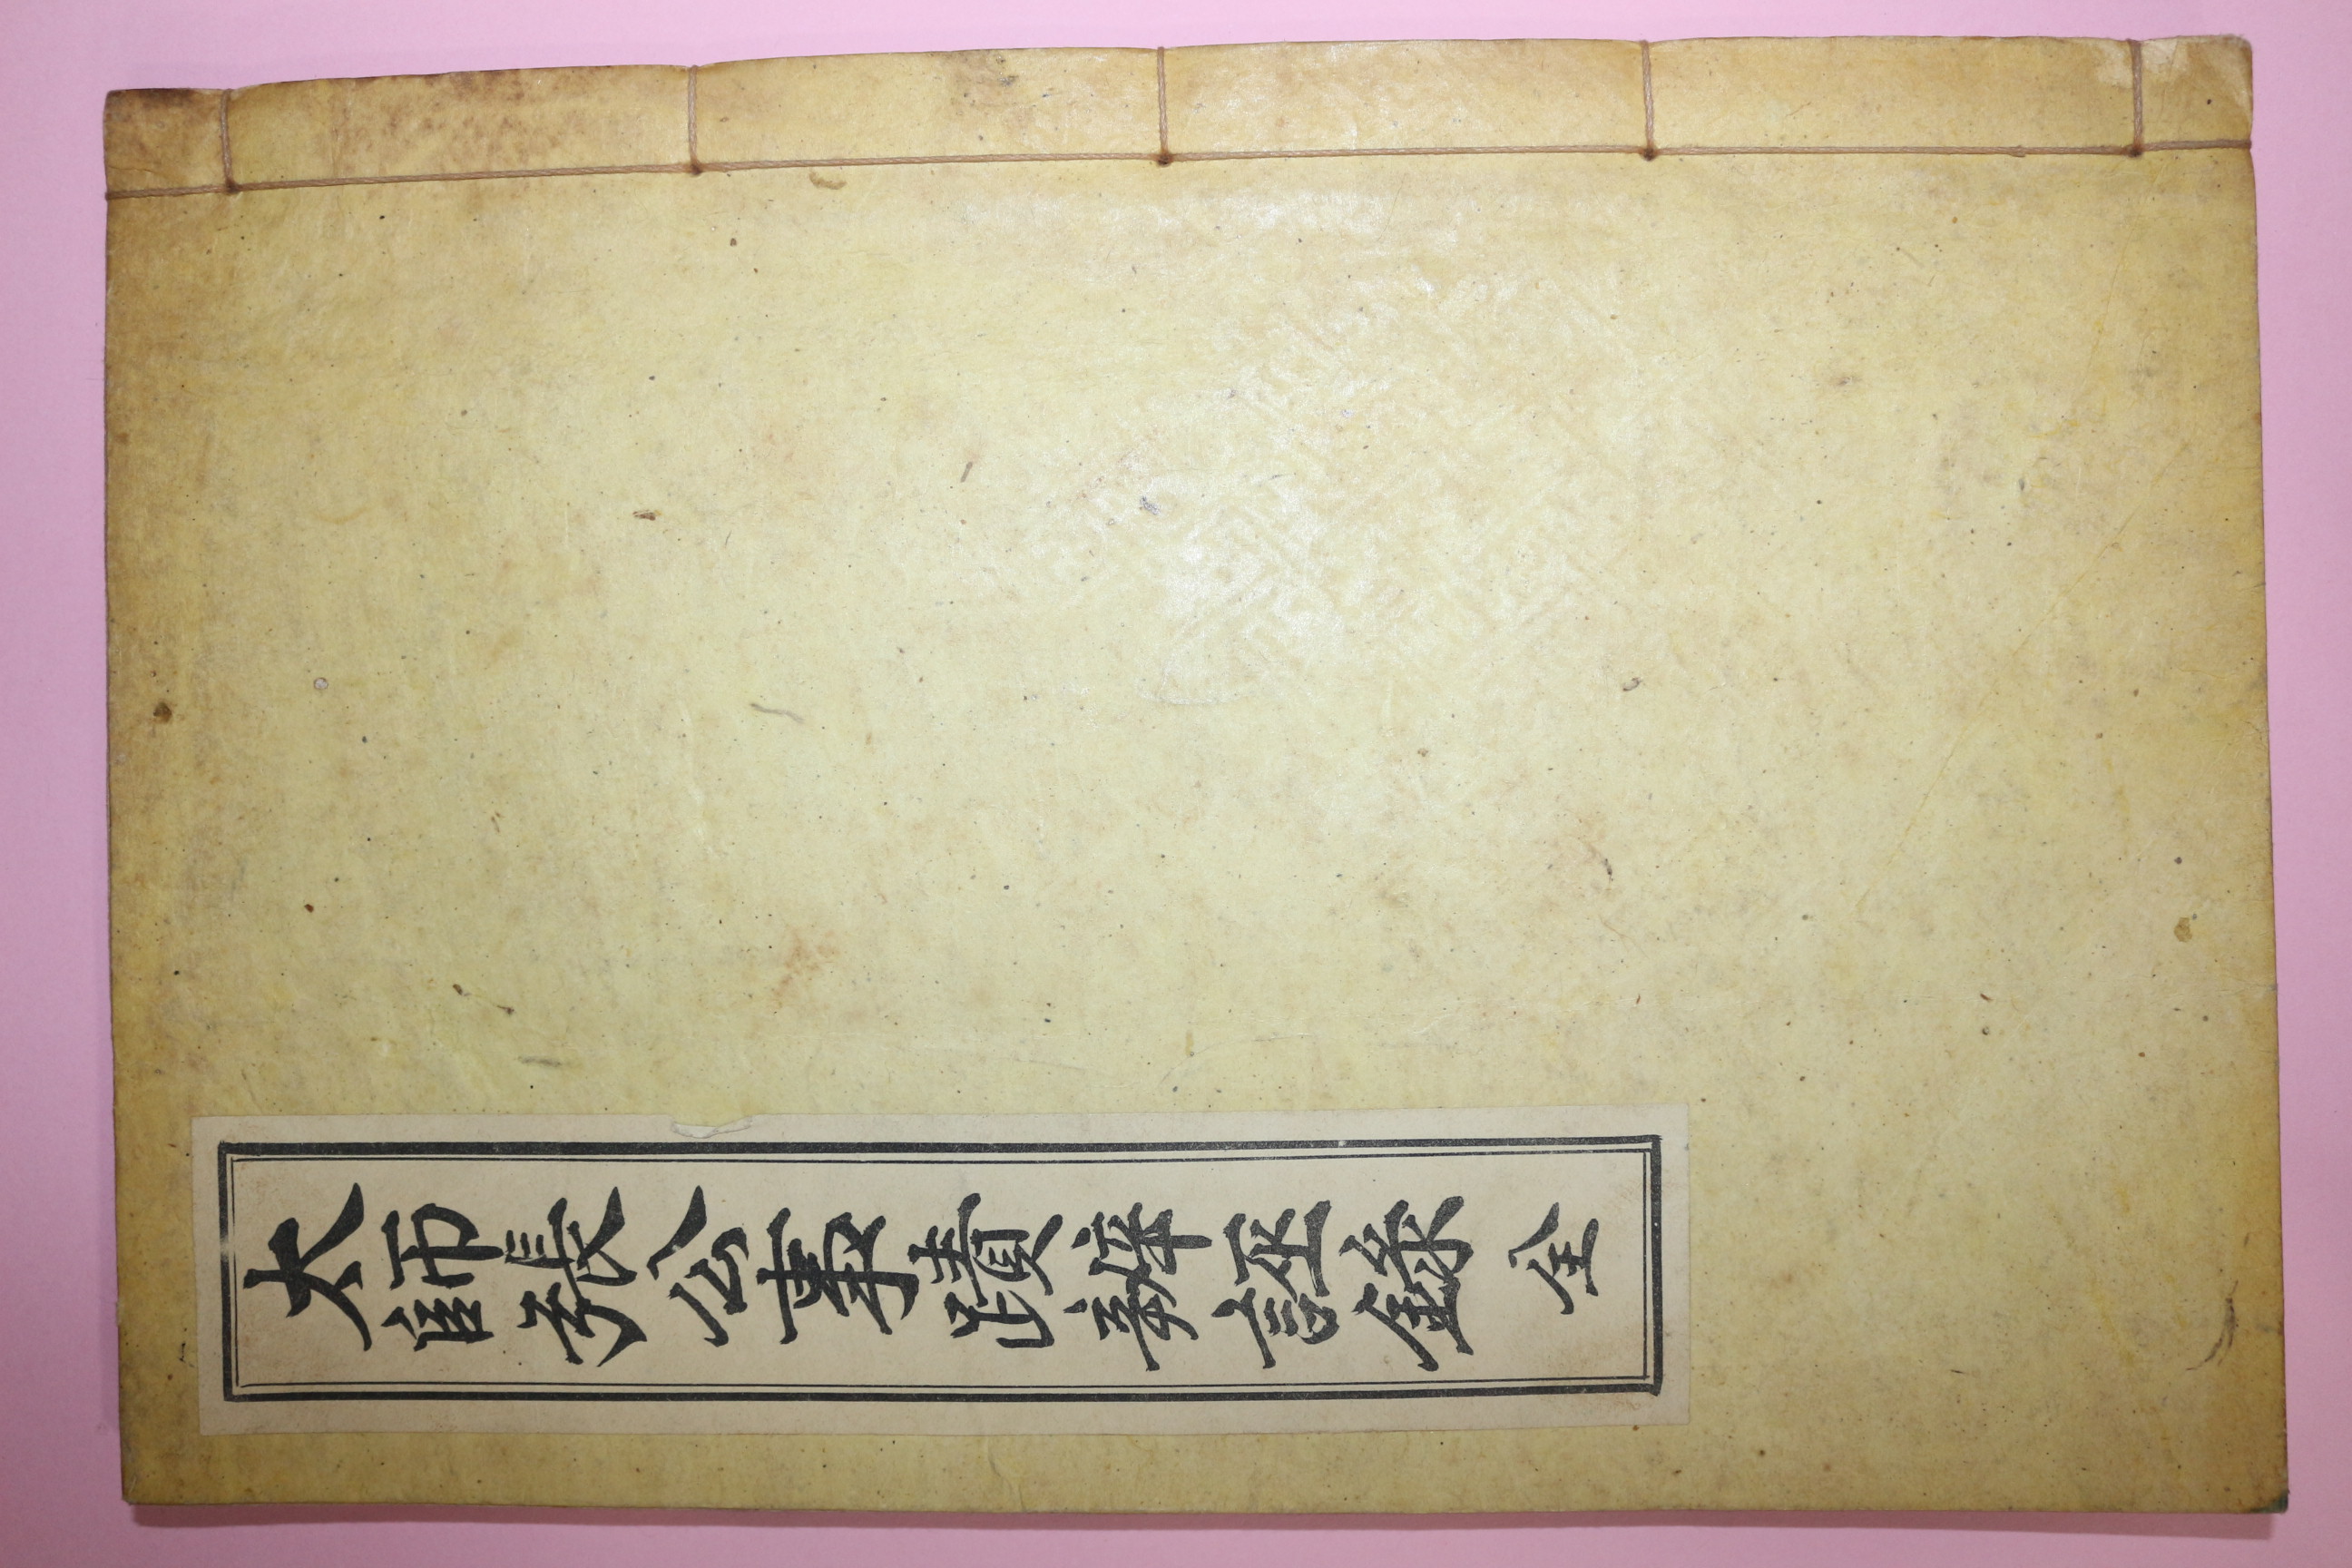 太師張公事蹟辨誣錄 全